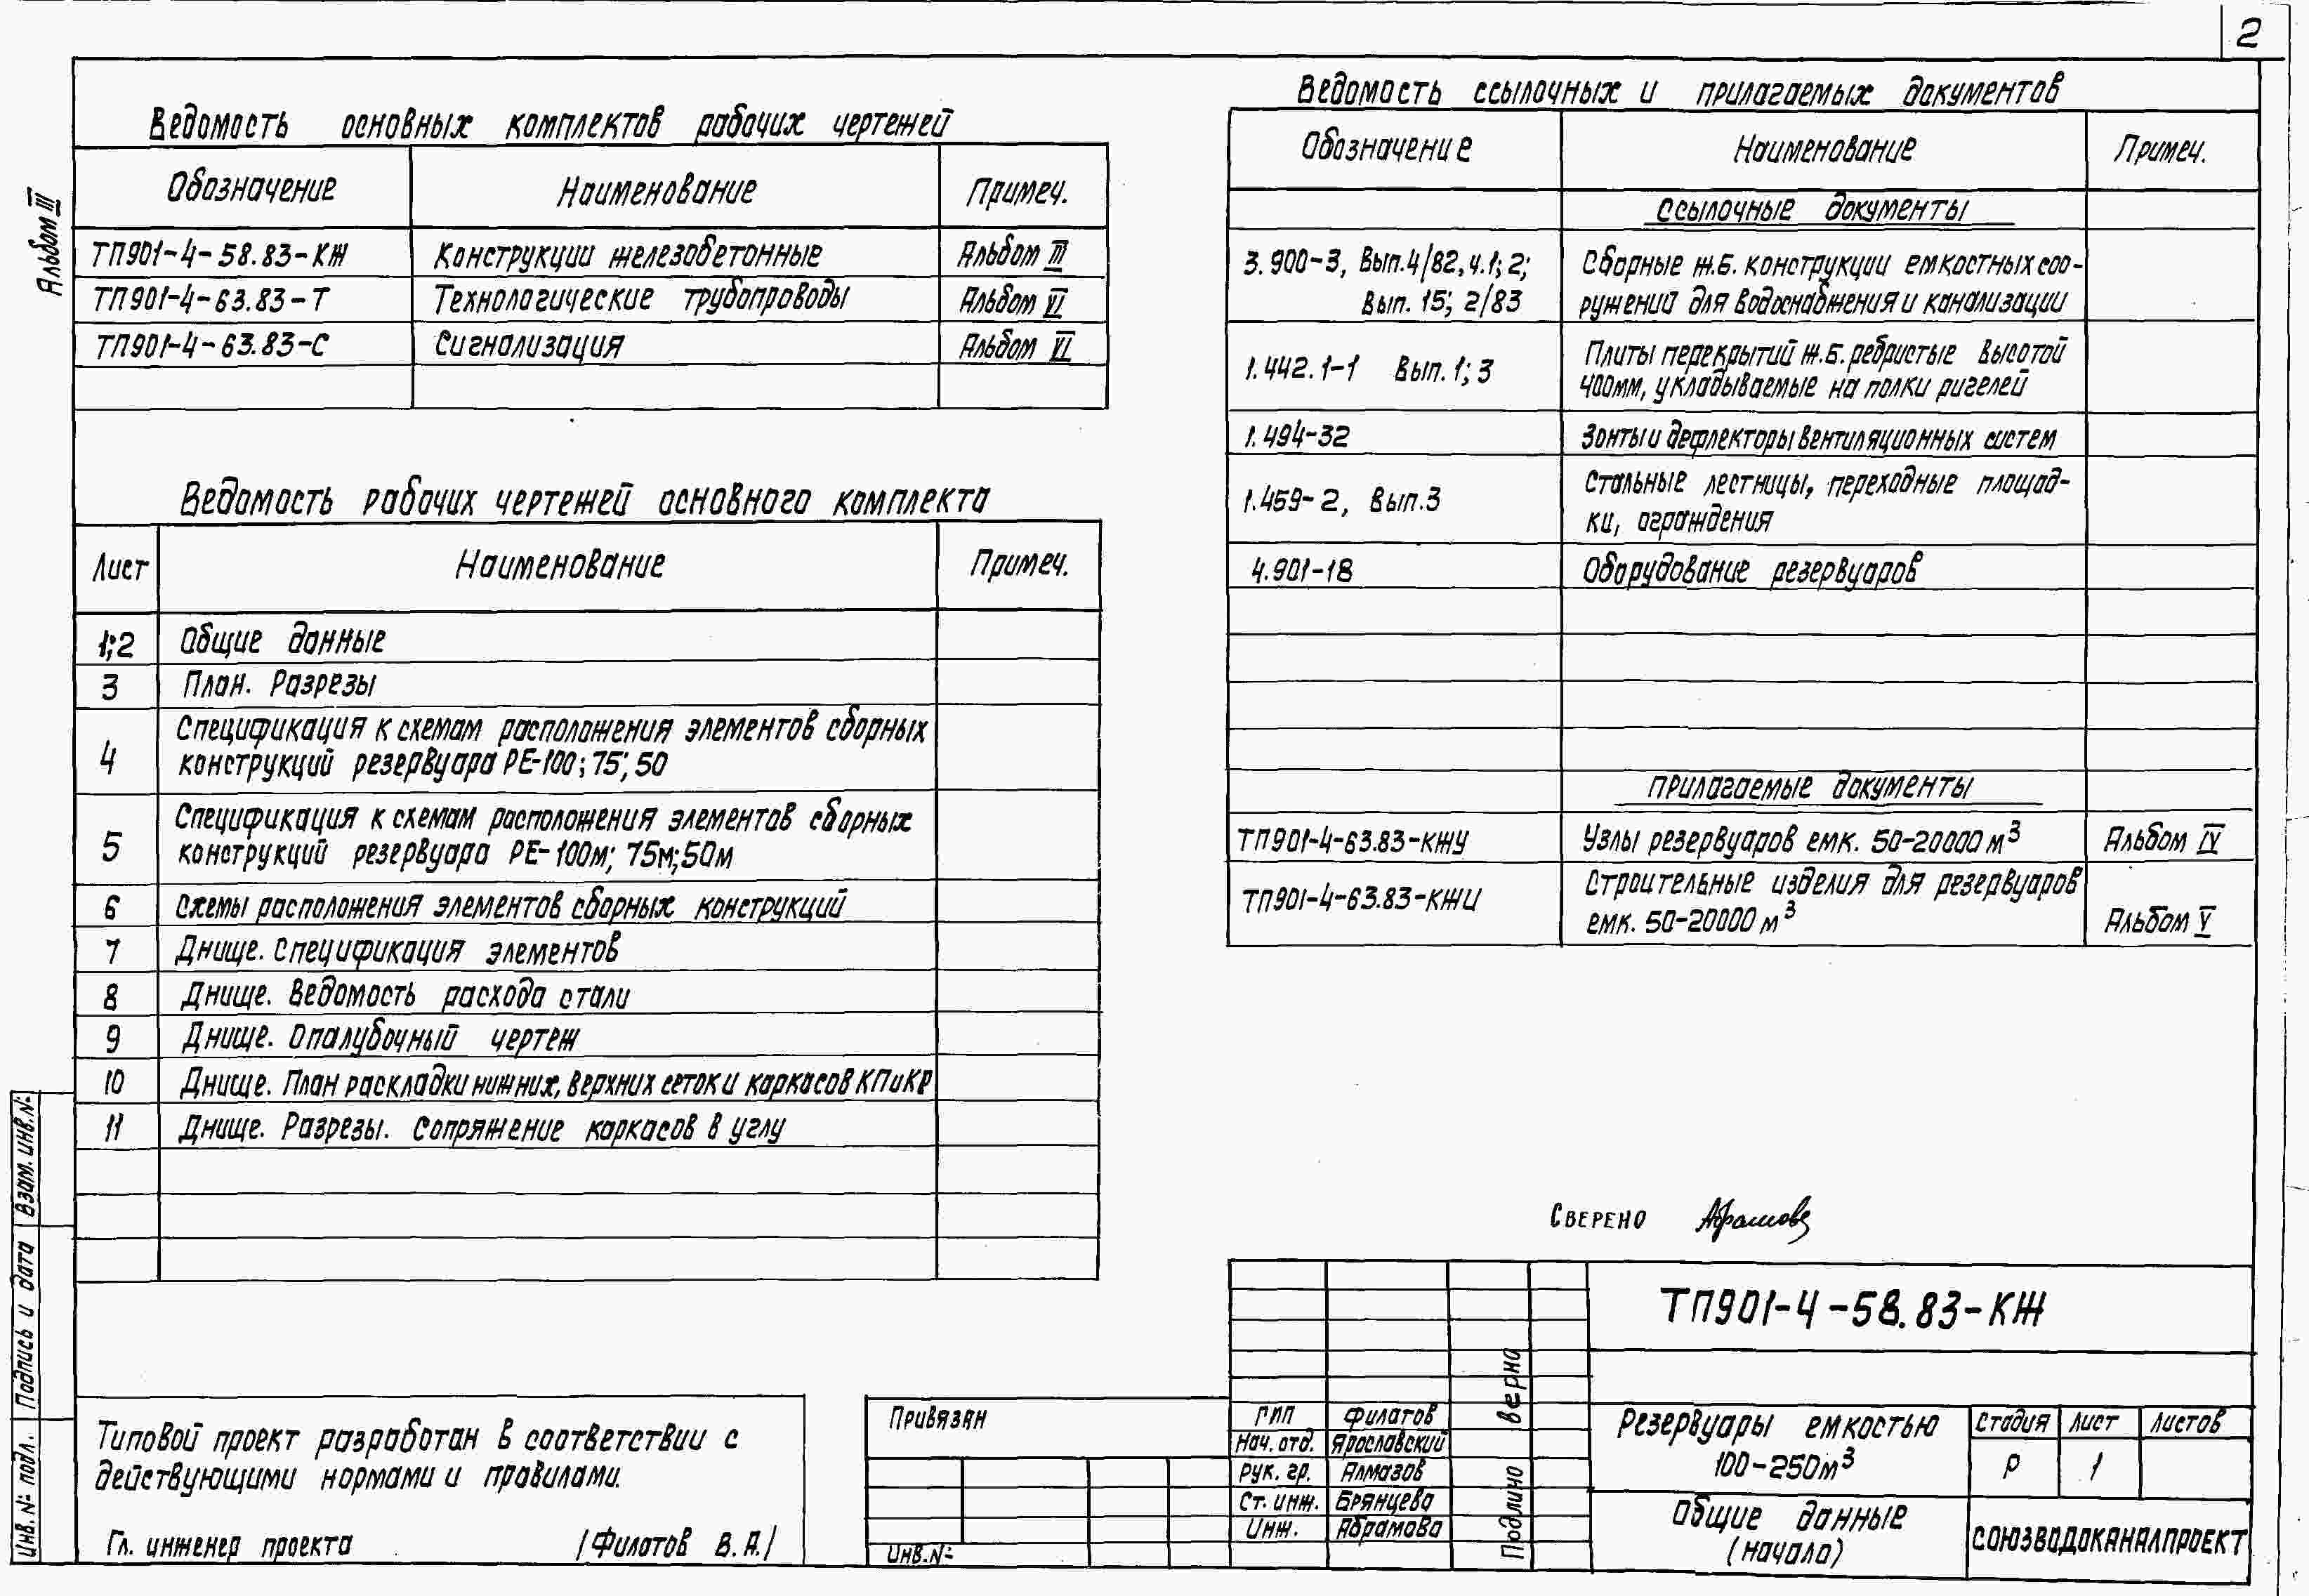 2
Альбом III
Ведомость основных комплектов рабочих чертежей
Обозначение Наименование Примеч.
ТП901-4-58.83-КЖ Конструкции железобетонные Альбом III
ТП901-4-63.83-Т Технологические трубопроводы Альбом VI
ТП901-4-63.83-С Сигнализация Альбом VI
Ведомость рабочих чертежей основного комплекта
Лист Наименование Примеч.
1;2 Общие данные
3 План. Разрезы
4 Спецификация к схемам расположения элементов сборных
конструкций резервуара РЕ-100; 75; 50
5 Спецификация к схемам расположения элементов сборных
конструкций резервуара РЕ-100м; 75м; 50м
6 Схемы расположения элементов сборных конструкций
7 Днище. Спецификация элементов
8 Днище. Ведомость расхода стали
9 Днище. Опалубочный чертеж
10 Днище. План раскладки нижних, верхних сеток и каркасов КП и КР
11 Днище. Разрезы. Сопряжение каркасов в углу
Ведомость ссылочных и прилагаемых документов
Обозначение Наименование Примеч.
Ссылочные документы
3.900-3, Вып.4/82, ч.1; 2; Сборные ж.б. конструкции емкостных соо-
Вып. 15; 2/83 ружений для водоснабжения и канализации
1.442.1-1 Вып. 1; 3 Плиты перекрытий ж.б. ребристые высотой
400мм, укладываемые на полки ригелей
1.494-32 Зонты и дефлекторы вентиляционных систем
1.459-2, Вып.3 Стальные лестницы, переходные площад-
ки, ограждения
4.901-18 Оборудование резервуаров
Прилагаемые документы
ТП901-4-63.83-КЖУ Узлы резервуаров емк. 50-20000 м³ Альбом IV
ТП901-4-63.83-КЖИ Строительные изделия для резервуаров
емк. 50-20000 м³ Альбом V
Сверено Абрамова
Взам. инв.№
Подпись и дата
Инв. № подл.
Типовой проект разработан в соответствии с
действующими нормами и правилами.
Гл. инженер проекта /Филатов В.А./
Привязан
Инв.№
ГИП Филатов
Нач. отд. Ярославский
Рук. гр. Алмазов
Ст. инж. Брянцева
Инж. Абрамова
Подлино верна
ТП901-4-58.83-КЖ
Резервуары емкостью
100-250м³
Стадия Лист Листов
Р 1
Общие данные
(начало)
СОЮЗВОДОКАНАЛПРОЕКТ